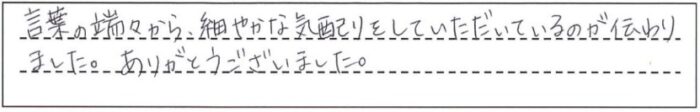 言葉の端々から、細やかな気配りをしていただいているのが伝わり
ました。ありがとうございました。